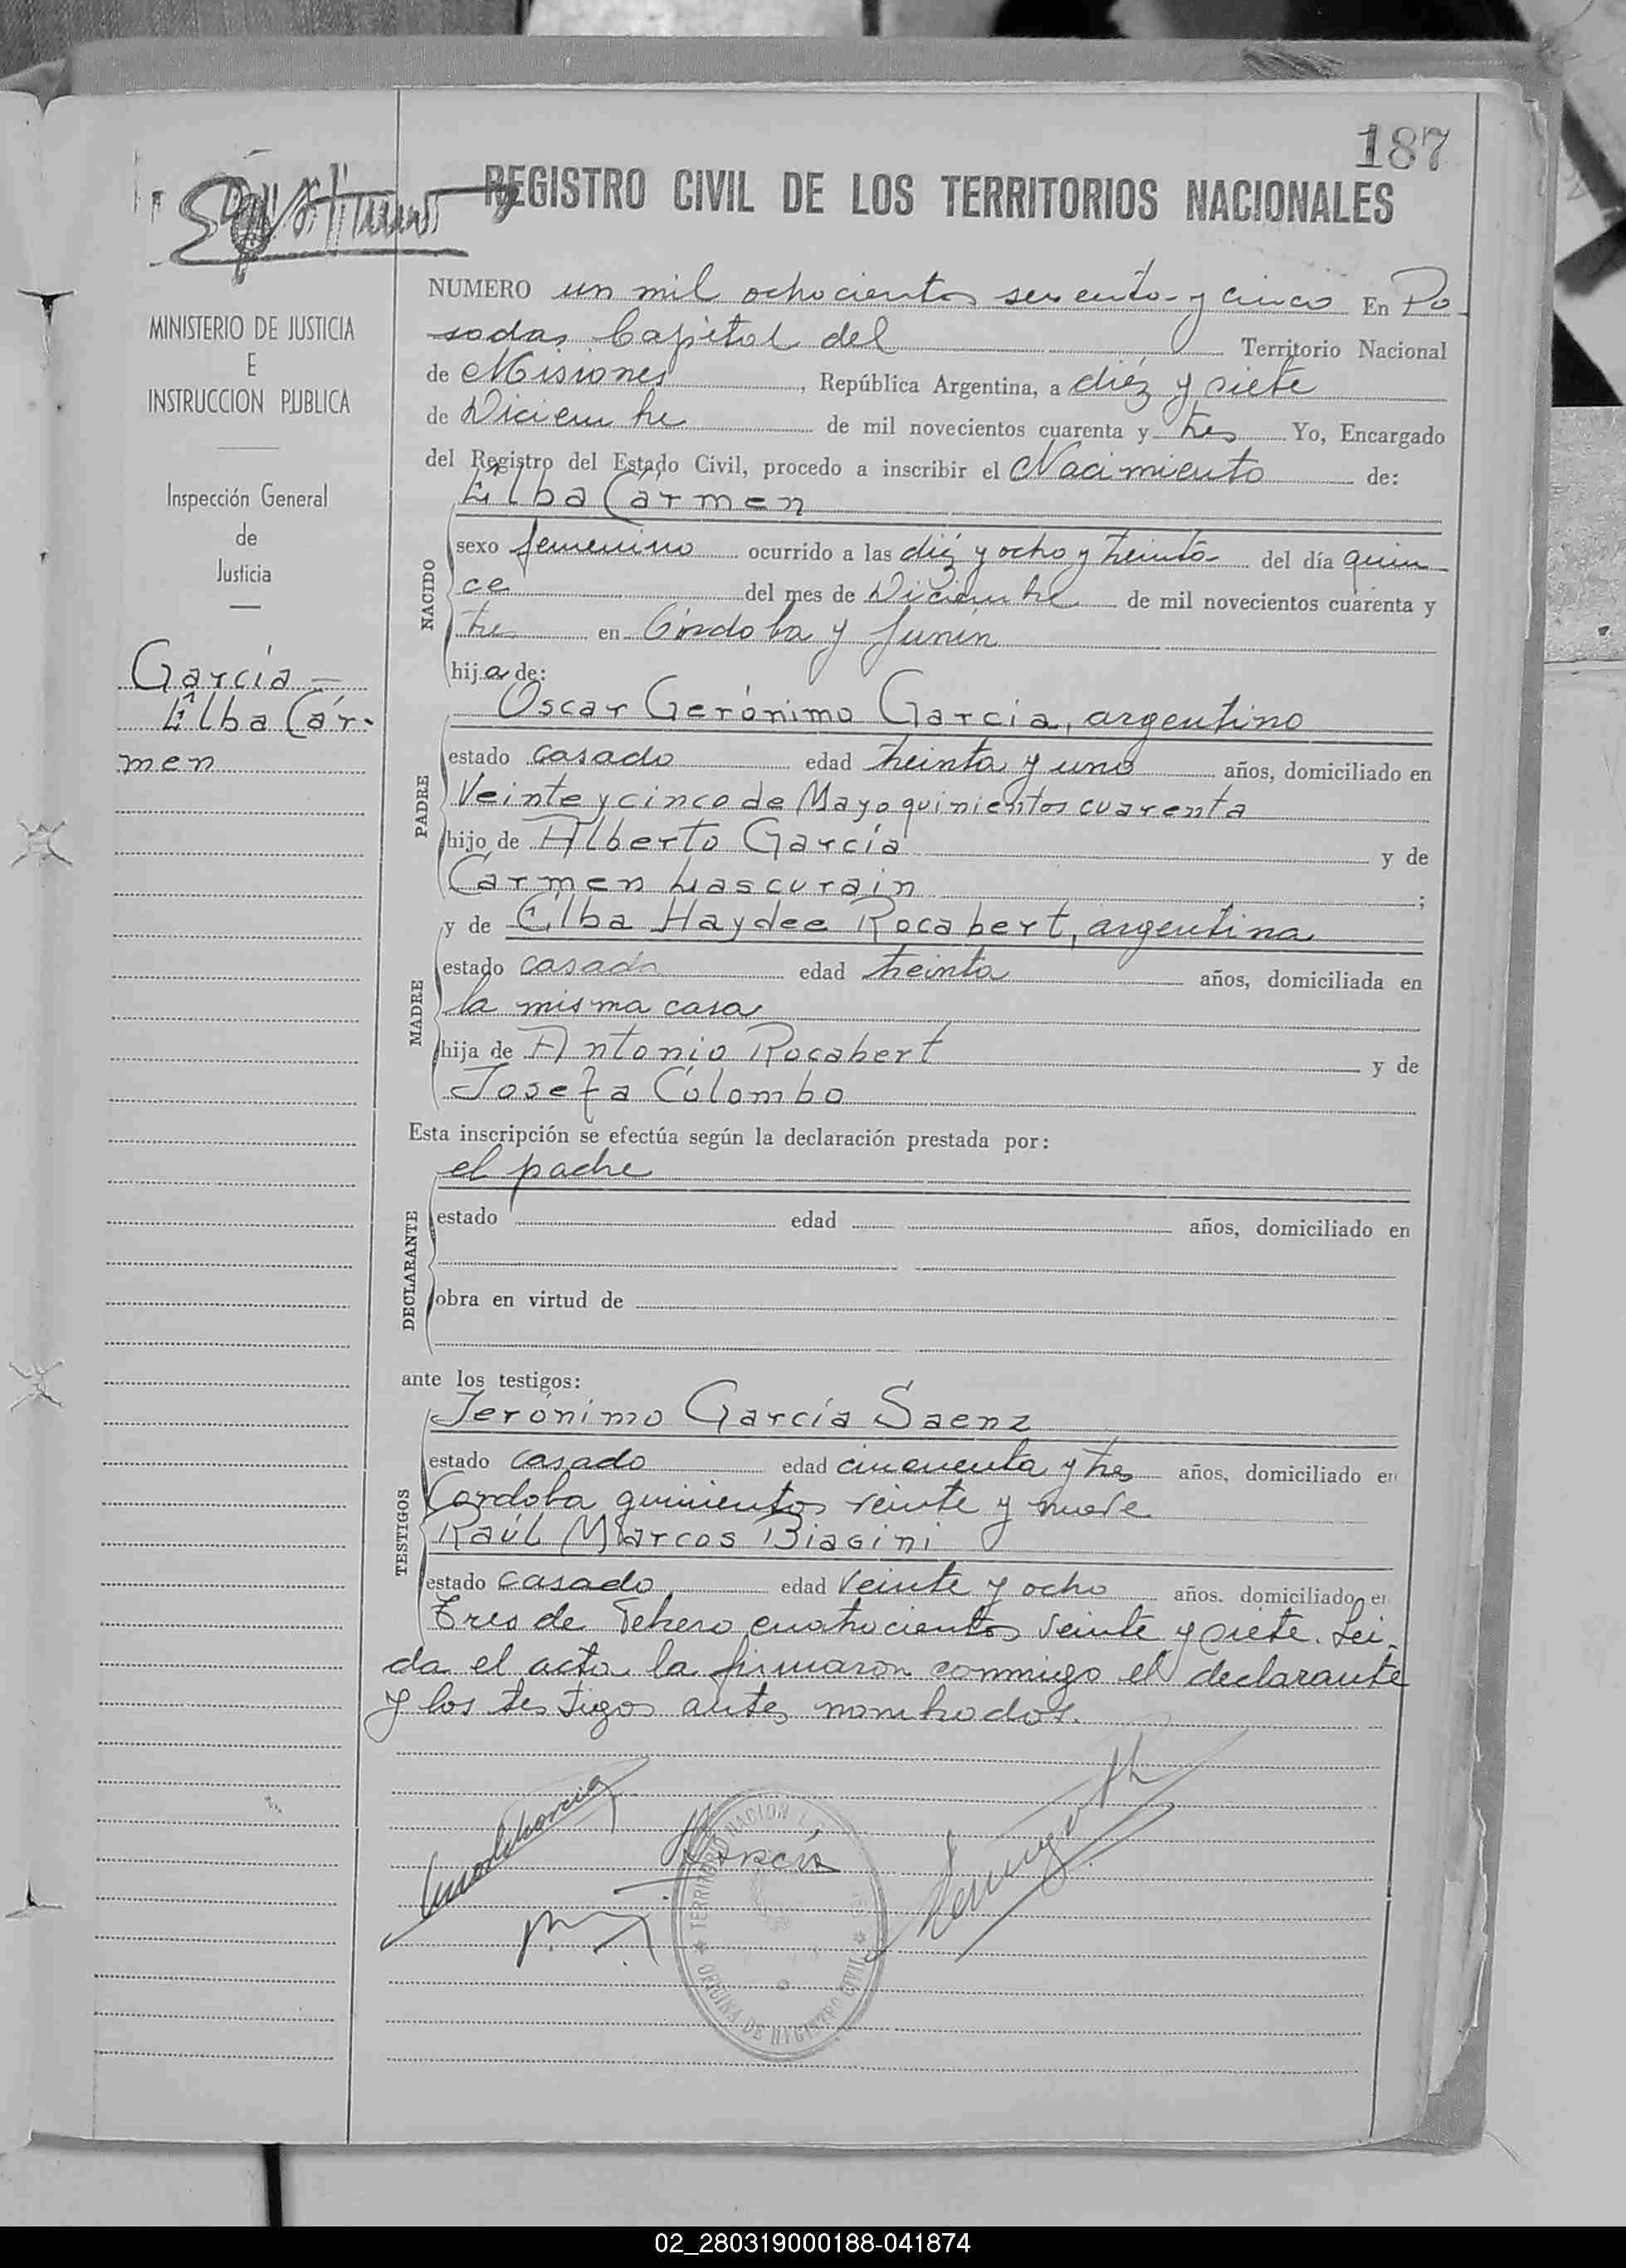 187
REGISTRO CIVIL DE LOS TERRITORIOS NACIONALES
MINISTERIO DE JUSTICIA
E
INSTRUCCION PUBLICA
Inspección General
de
Justicia
García -
Elba Cár-
men
NUMERO un mil ochocientos sesenta y cinco En Po-
sadas Capital del Territorio Nacional
de Misiones, República Argentina, a diéz y siete
de Diciembre de mil novecientos cuarenta y tres Yo, Encargado
del Registro del Estado Civil, procedo a inscribir el Nacimiento de:
Elba Cármen
NACIDO
sexo femenino ocurrido a las diéz y ocho y treinta del día quin-
ce del mes de Diciembre de mil novecientos cuarenta y
tres en Córdoba y Junín
hija de:
PADRE
Oscar Gerónimo García, argentino
estado casado edad treinta y uno años, domiciliado en
Veinte y cinco de Mayo quinientos cuarenta
hijo de Alberto García y de
Cármen Lascurain ;
MADRE
y de Elba Haydee Rocabert, argentina
estado casada edad treinta años, domiciliada en
la misma casa
hija de Antonio Rocabert y de
Josefa Cólombo
Esta inscripción se efectúa según la declaración prestada por:
DECLARANTE
el padre
estado edad años, domiciliado en
obra en virtud de
ante los testigos:
TESTIGOS
Jerónimo García Saenz
estado casado edad cincuenta y tres años, domiciliado en
Cordoba quinientos veinte y nueve
Raúl Marcos Biagini
estado casado edad veinte y ocho años, domiciliado en
Tres de Febrero cuatrocientos veinte y siete. Lei-
da el acta la firmaron conmigo el declarante
y los testigos antes nombrados.
García
TERRITORIO NACIONAL
OFICINA DE REGISTRO CIVIL
02_280319000188-041874